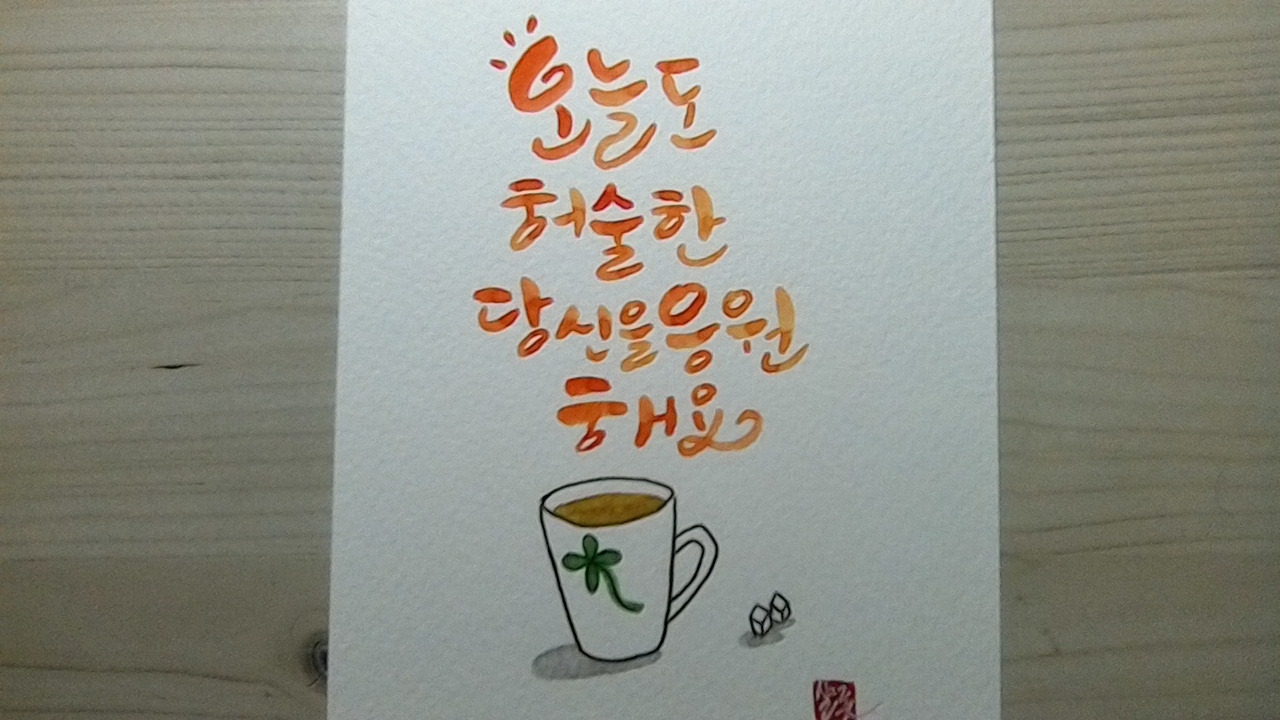 오늘도
허술한
당신을응원
해요